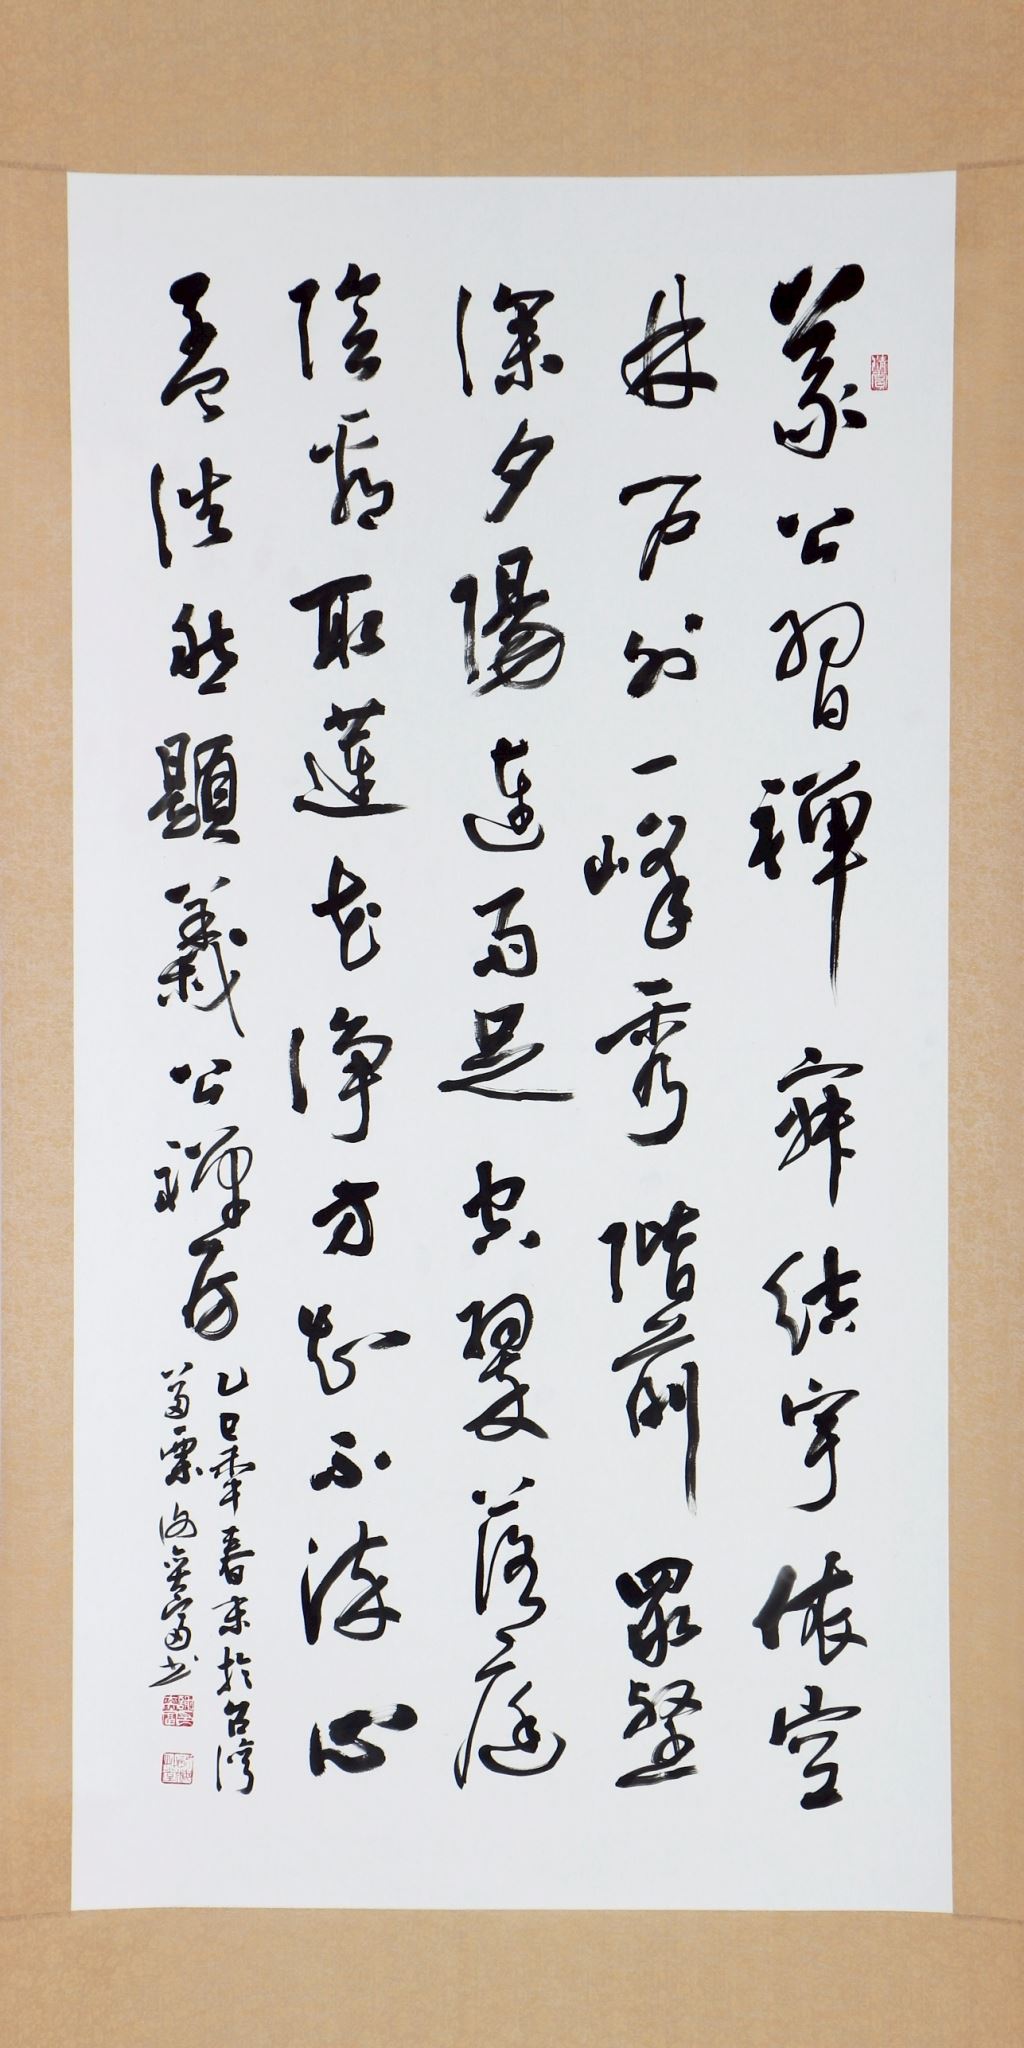 義公習禪寂結宇依空
林戶外一峰秀階前眾壑
深夕陽連雨足空翠落庭
陰看取蓮花淨方知不染心
孟浩然題義公禪房
乙巳年春末於台灣
苗栗
書